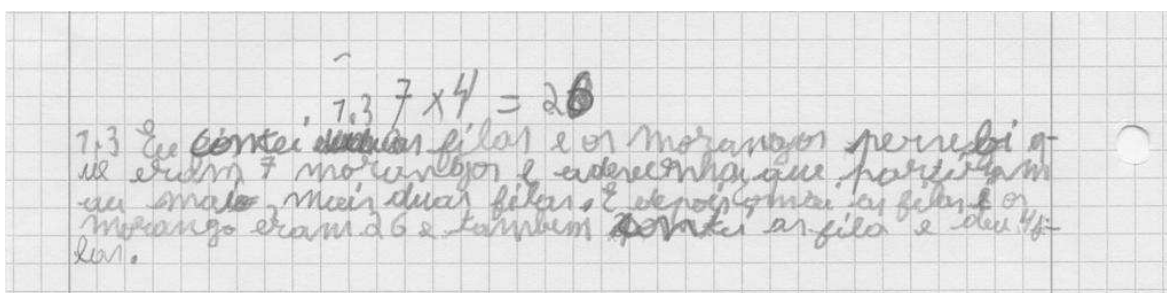 1.3 7 x 4 = 26
1.3 Eu contei duas filas e os morangos persebi q-
ue eram 7 morangos e adevinhei que partiram
au maio mais duas filas. E depois somei as filas e os
morango eram 26 e tambem contei as fila e deu 4 fi-
las.